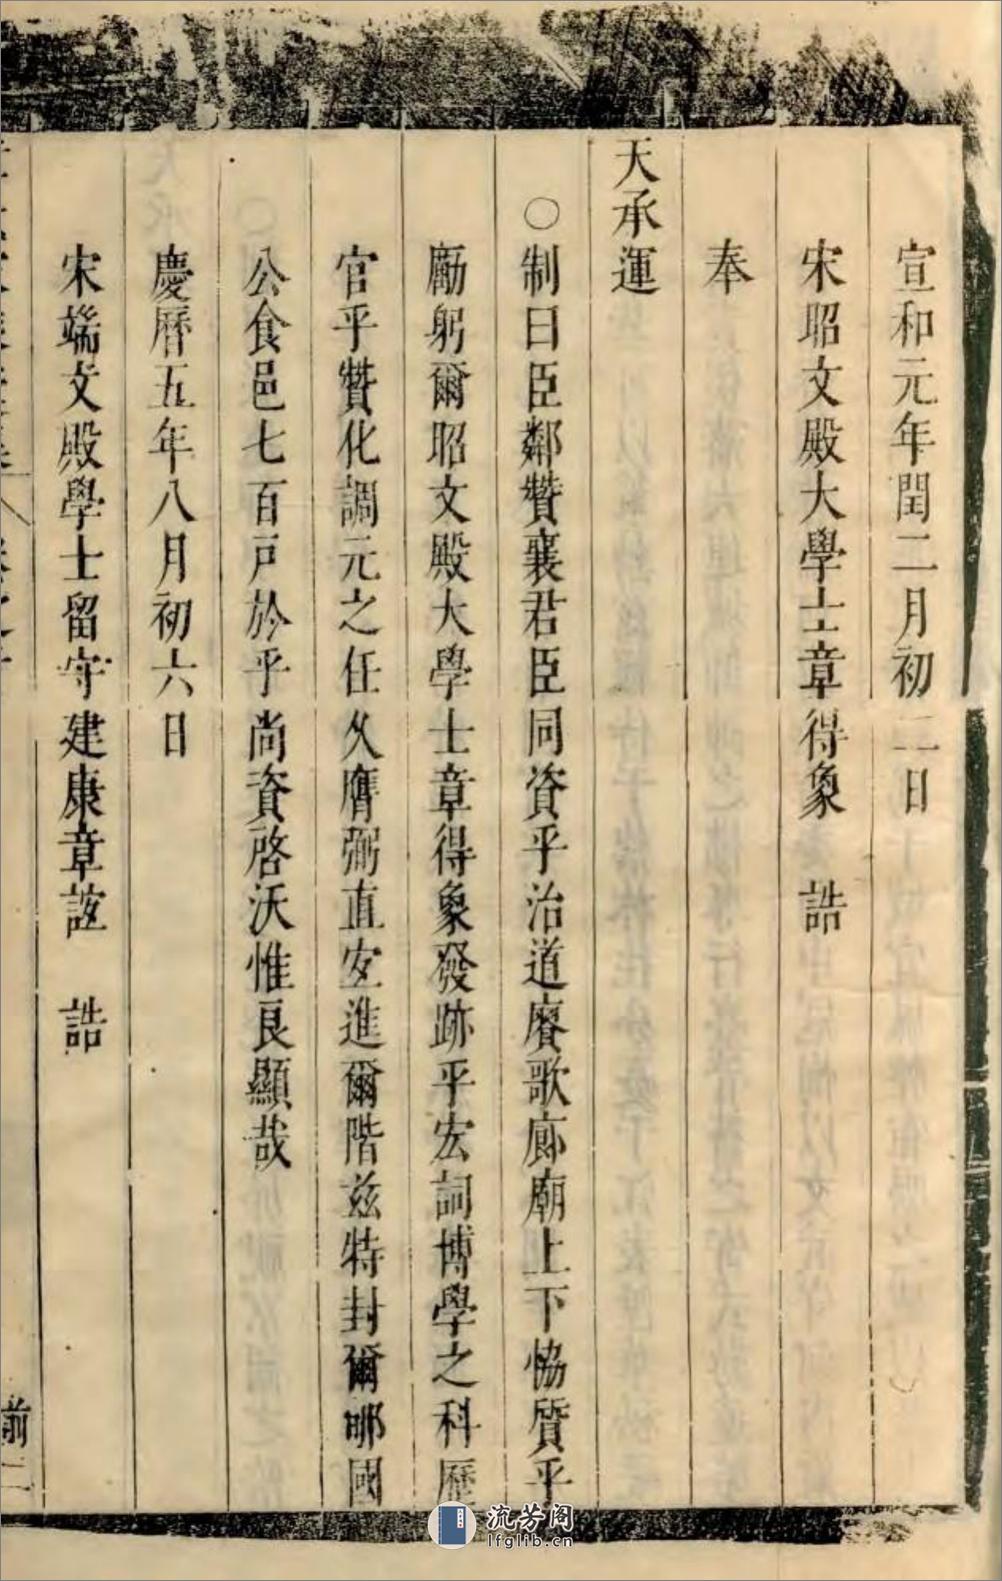 宣和元年閏二月初二日
宋昭文殿大學士章得象 誥
奉
天承運
○制曰臣鄰贊襄君臣同資乎治道賡歌廊廟上下恊贋乎
勵躬爾昭文殿大學士章得象發跡乎宏詞博學之科歷
官乎贊化調元之任久膺弼直安進爾階兹特封爾郇國
公食邑七百戸於乎尚資啓沃惟良顯哉
慶曆五年八月初六日
宋端文殿學士留守建康章誼 誥
前二
流芳阁
lfglib.cn